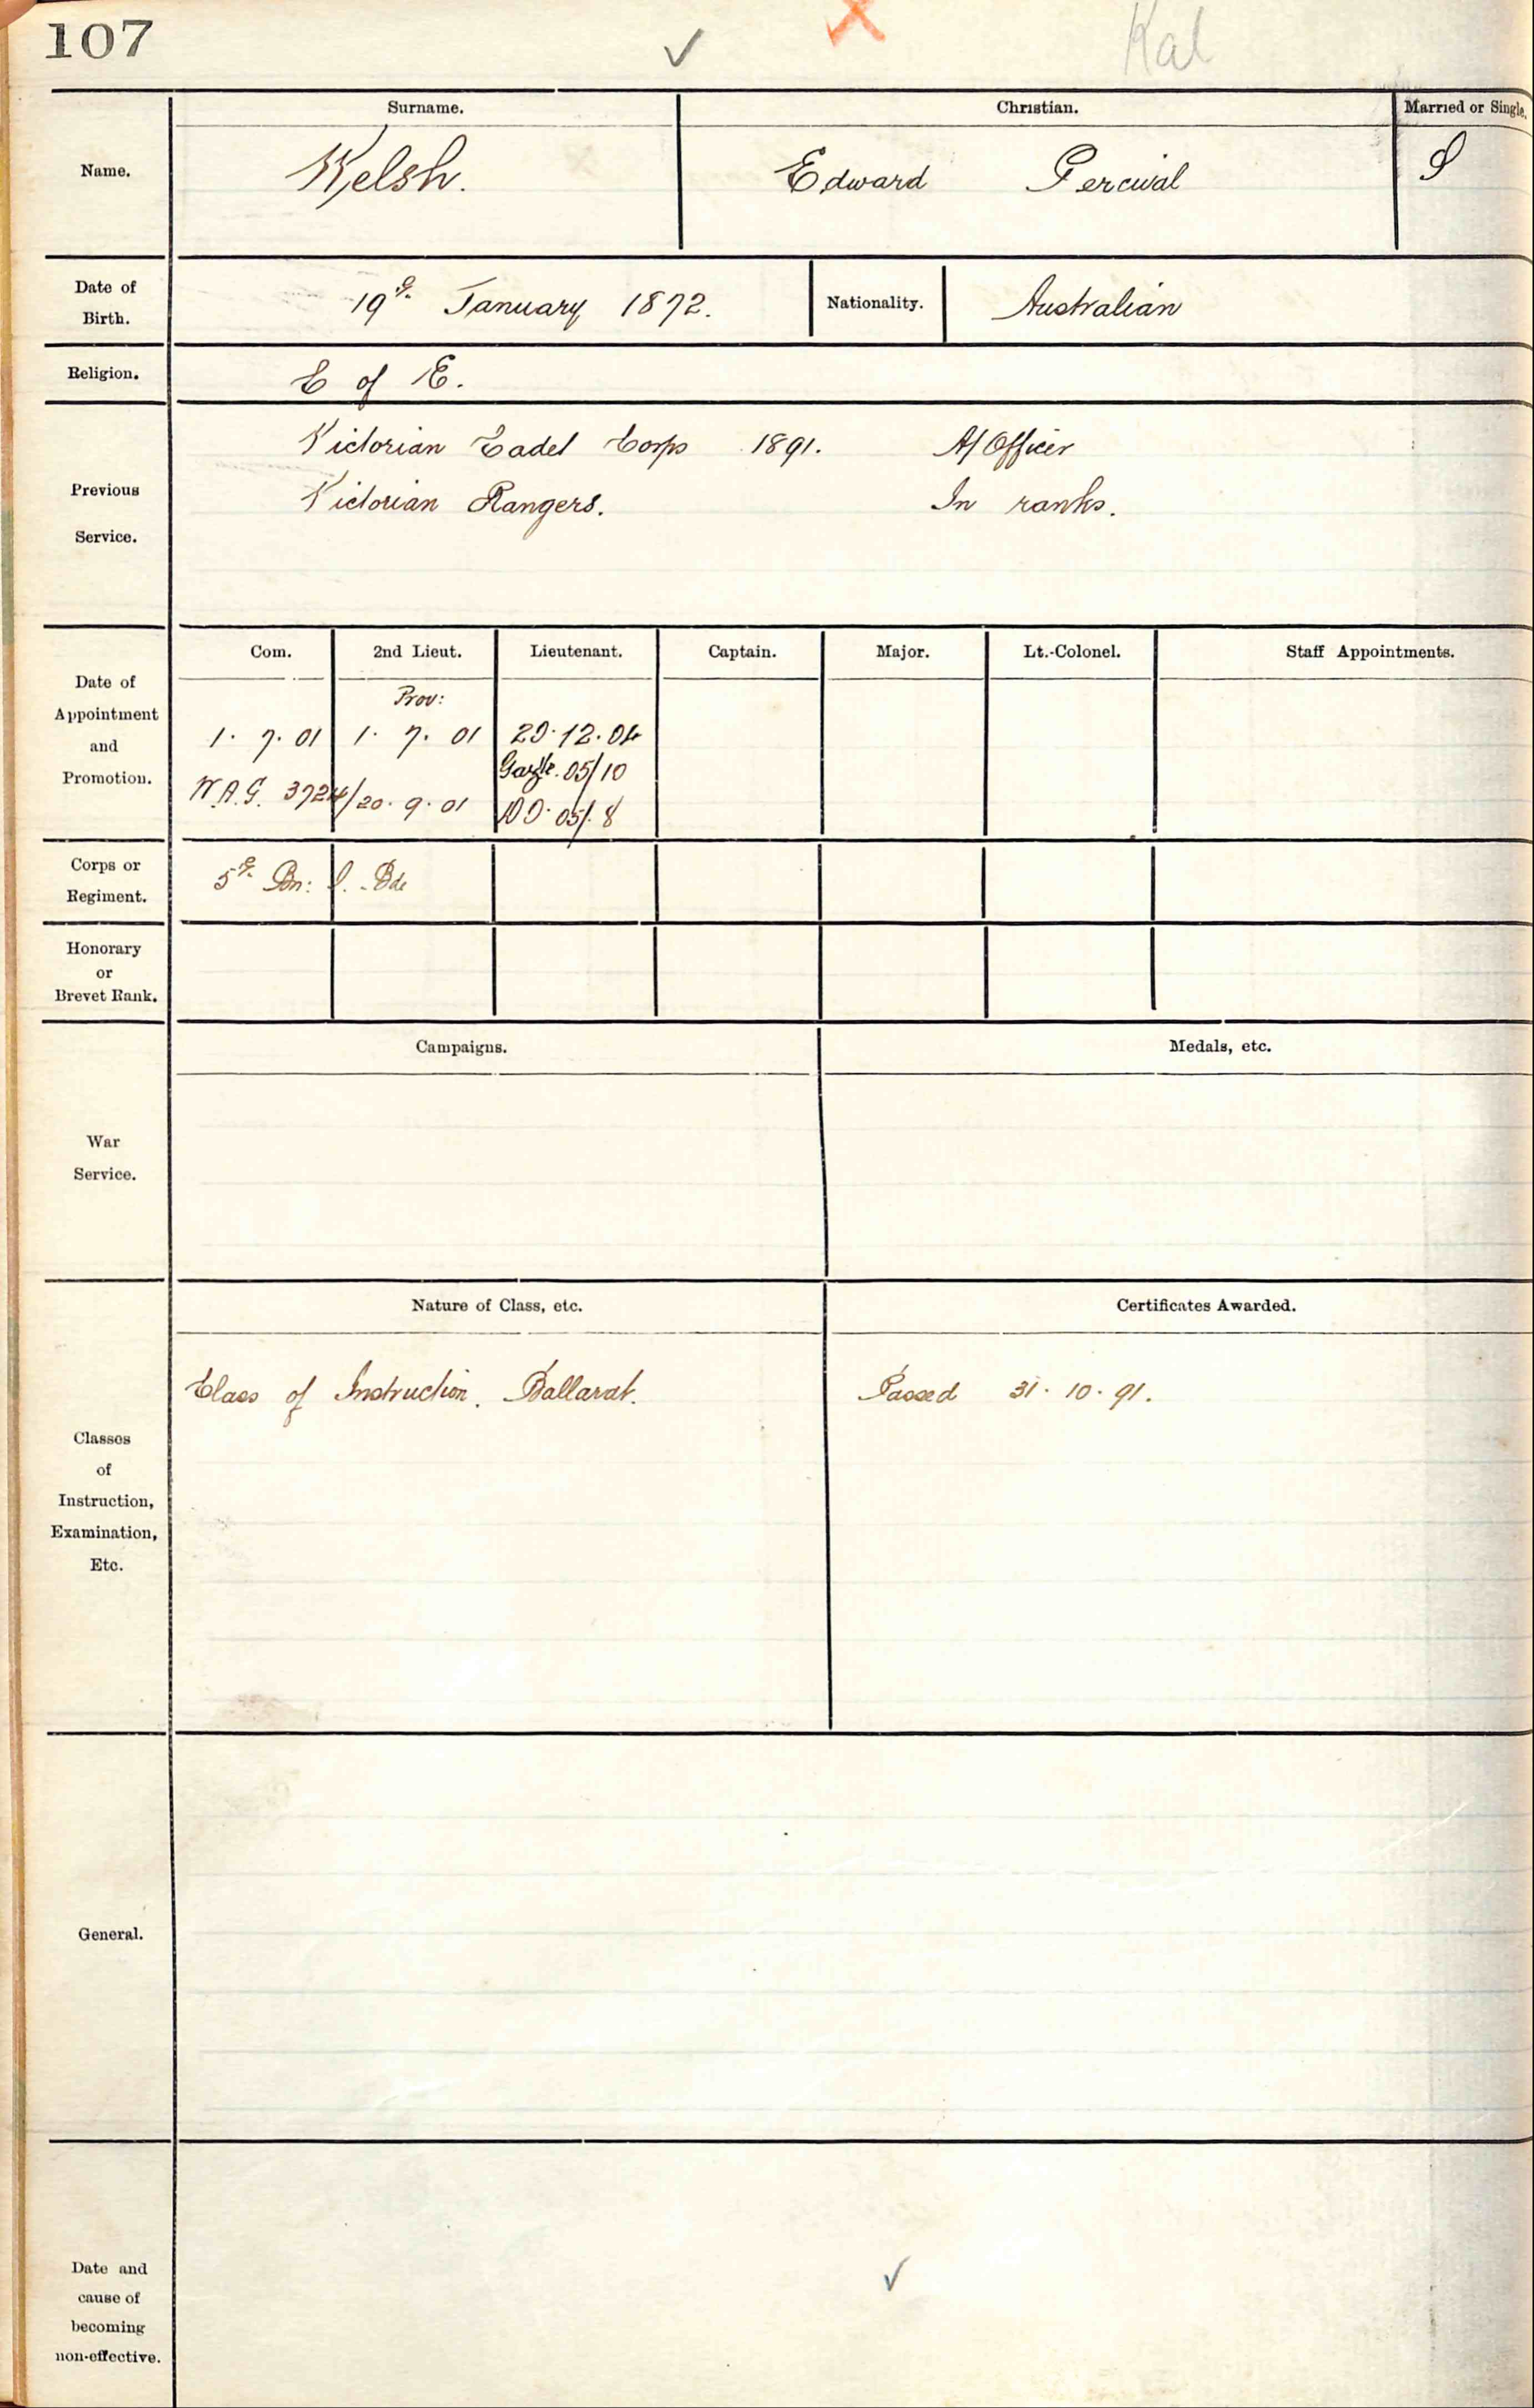 107 Kal
Surname. Christian. Married or Single.
Name. Welsh. Edward Percival S
Date of Birth. 19th January 1872. Nationality. Australian
Religion. C of E.
Previous Service.
Victorian Cadet Corps 1891. A/Officer
Victorian Rangers. In ranks.
Com. 2nd Lieut. Lieutenant. Captain. Major. Lt.-Colonel. Staff Appointments.
Date of Appointment and Promotion.
Prov:
1. 7. 01 1. 7. 01 20.12.04
Gaztte. 05/10
W.A.G. 3724/20.9.01 05/8
Corps or Regiment. 5th Bn: I. Bde
Honorary or Brevet Rank.
Campaigns. Medals, etc.
War Service.
Nature of Class, etc. Certificates Awarded.
Class of Instruction. Ballarat. Passed 31. 10. 91.
Classes of Instruction, Examination, Etc.
General.
Date and cause of becoming non-effective.